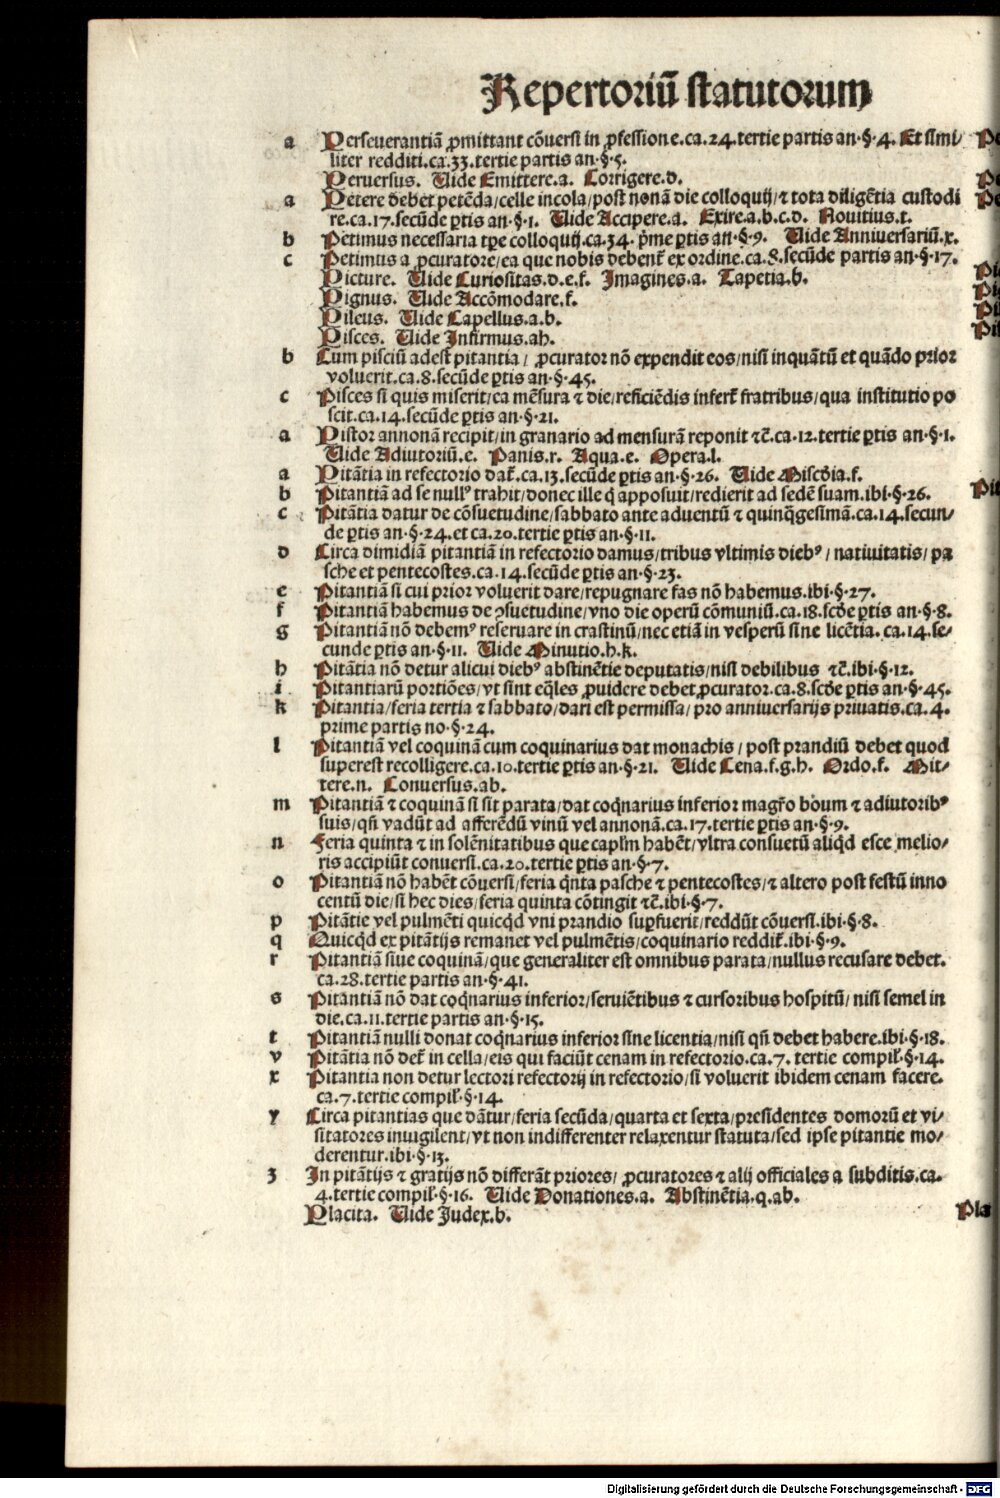 Repertoriū statutorum
a Perseuerantiā ꝓmittant cōuersi in ꝓfessione.ca.24.tertie partis an.§.4. Et simi/
liter redditi.ca.33.tertie partis an.§.5.
Peruersus. Uide Emittere.a. Corrigere.d.
a Petere debet petēda/celle incola/post nonā die colloquij/⁊ tota diligētia custodi
re.ca.17.secūde ꝑtis an.§.1. Uide Accipere.a. Exire.a.b.c.d. Nouitius.t.
b Petimus necessaria tꝑe colloquij.ca.34. p̄me ꝑtis an.§.9. Uide Anniuersariū.x.
c Petimus a ꝓcuratore/ea que nobis debent̄ ex ordine.ca.8.secūde partis an.§.17.
Picture. Uide Curiositas.d.e.f. Imagines.a. Tapetia.b.
Pignus. Uide Accōmodare.f.
Pileus. Uide Capellus.a.b.
Pisces. Uide Infirmus.ah.
b Cum pisciū adest pitantia/ ꝓcurator nō expendit eos/nisi inquātū et quādo prior
voluerit.ca.8.secūde ꝑtis an.§.45.
c Pisces si quis miserit/ea mēsura ⁊ die/reficiēdis infert̄ fratribus/qua institutio po
scit.ca.14.secūde ꝑtis an.§.21.
a Pistor annonā recipit/in granario ad mensurā reponit ⁊c̄.ca.12.tertie ꝑtis an.§.1.
Uide Adiutoriū.e. Panis.r. Aqua.e. Opera.l.
a Pitātia in refectorio dat̄.ca.13.secūde ꝑtis an.§.26. Uide Miscōia.f.
b Pitantiā ad se nullꝰ trahit/donec ille q̄ apposuit/redierit ad sedē suam.ibi.§.26.
c Pitātia datur de cōsuetudine/sabbato ante aduentū ⁊ quinq̄gesimā.ca.14.secun/
de ꝑtis an.§.24.et ca.20.tertie ꝑtis an.§.11.
d Circa dimidiā pitantiā in refectorio damus/tribus vltimis diebꝰ/natiuitatis/pa
sche et pentecostes.ca.14.secūde ꝑtis an.§.23.
e Pitantiā si cui prior voluerit dare/repugnare fas nō habemus.ibi.§.27.
f Pitantiā habemus de ꝯsuetudine/vno die operū cōmuniū.ca.18.scōe ꝑtis an.§.8.
g Pitantiā nō debemꝰ reseruare in crastinū/nec etiā in vesperū sine licētia. ca.14.se/
cunde ꝑtis an.§.11. Uide Minutio.h.k.
h Pitātia nō detur alicui diebꝰ abstinētie deputatis/nisi debilibus ⁊c̄.ibi.§.12.
i Pitantiarū portiōes/vt sint eq̄les ꝓuidere debet ꝓcurator.ca.8.scōe ꝑtis an.§.45.
k Pitantia/feria tertia ⁊ sabbato/dari est permissa/pro anniuersarijs priuatis.ca.4.
prime partis no.§.24.
l Pitantiā vel coquinā cum coquinarius dat monachis/post prandiū debet quod
superest recolligere.ca.10.tertie ꝑtis an.§.21. Uide Cena.f.g.h. Ordo.f. Mit/
tere.n. Conuersus.ab.
m Pitantiā ⁊ coquinā si sit parata/dat coq̄narius inferior magr̄o boum ⁊ adiutoribꝰ
suis/qn̄ vadūt ad afferēdū vinū vel annonā.ca.17.tertie ꝑtis an.§.9.
n Feria quinta ⁊ in solēnitatibus que capl̄m habēt/vltra consuetū aliq̄d esce melio/
ris accipiūt conuersi.ca.20.tertie ꝑtis an.§.7.
o Pitantiā nō habēt cōuersi/feria q̄nta pasche ⁊ pentecostes/⁊ altero post festū inno
centū die/si hec dies/feria quinta cōtingit ⁊c̄.ibi.§.7.
p Pitātie vel pulmēti quicq̄d vni prandio suꝑfuerit/reddūt cōuersi.ibi.§.8.
q Quicq̄d ex pitātijs remanet vel pulmētis/coquinario reddit̄.ibi.§.9.
r Pitantiā siue coquinā/que generaliter est omnibus parata/nullus recusare debet.
ca.28.tertie partis an.§.41.
s Pitantiā nō dat coq̄narius inferior/seruiētibus ⁊ cursoribus hospitū/nisi semel in
die.ca.11.tertie partis an.§.15.
t Pitantiā nulli donat coq̄narius inferior sine licentia/nisi qn̄ debet habere.ibi.§.18.
v Pitātia nō det̄ in cella/eis qui faciūt cenam in refectorio.ca.7. tertie compil̄.§.14.
x Pitantia non detur lectori refectorij in refectorio/si voluerit ibidem cenam facere.
ca.7.tertie compil̄.§.14.
y Circa pitantias que dātur/feria secūda/quarta et sexta/presidentes domorū et vi/
sitatores inuigilent/vt non indifferenter relaxentur statuta/sed ipse pitantie mo/
derentur.ibi.§.13.
z In pitātijs ⁊ gratijs nō differāt priores/ ꝓcuratores ⁊ alij officiales a subditis.ca.
4.tertie compil̄.§.16. Uide Donationes.a. Abstinētia.q.ab.
Placita. Uide Judex.b.
Pla
Digitalisierung gefördert durch die Deutsche Forschungsgemeinschaft - DFG